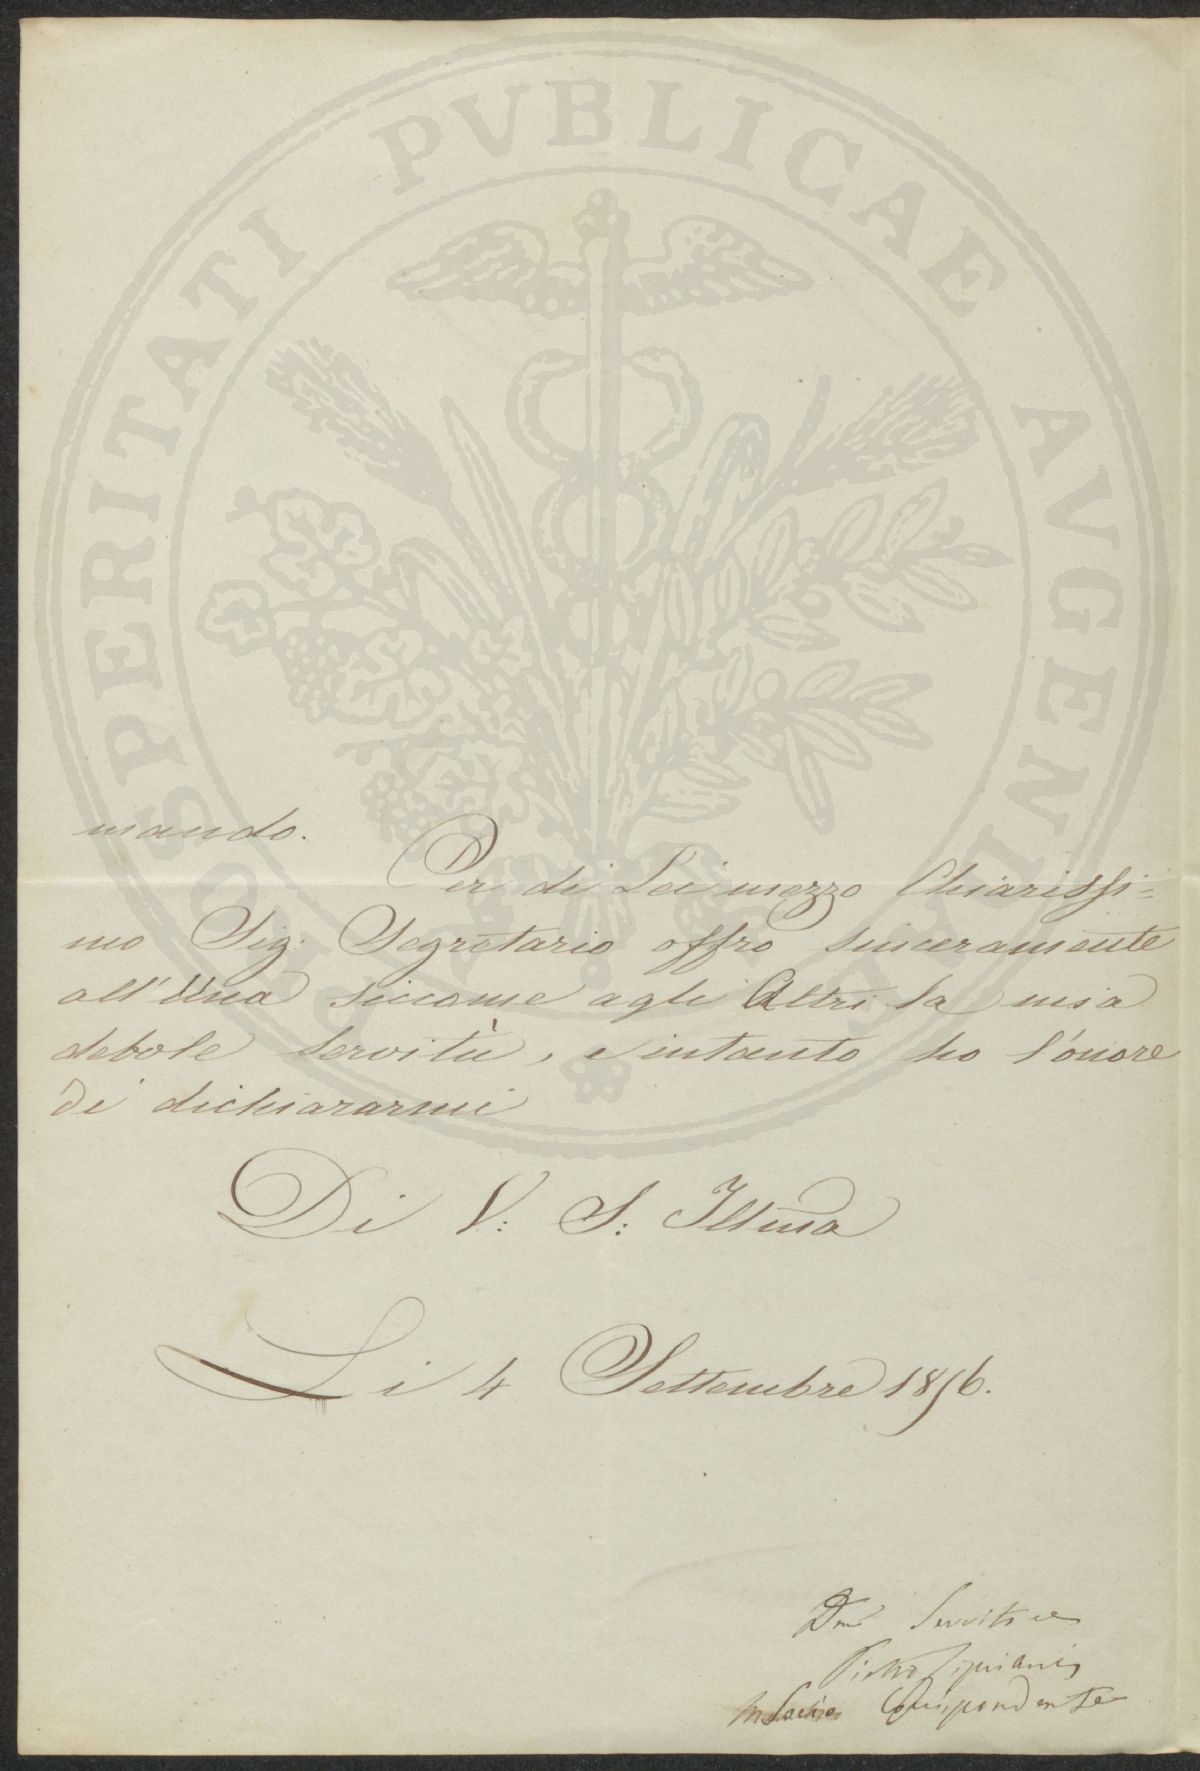 PROSPERITATI PVBLICAE AVGENDAE
mando.
Per di Lei mezzo Chiarissi=
mo Sig: Segretario offro sinceramente
all'Una siccome agli Altri la mia
debole servitù, e intanto ho l'onore
di dichiararmi
Di V: S: Illma
Li 4 Settembre 1856.
Servitore
Pietro Cipriani
Socio Corrispondente